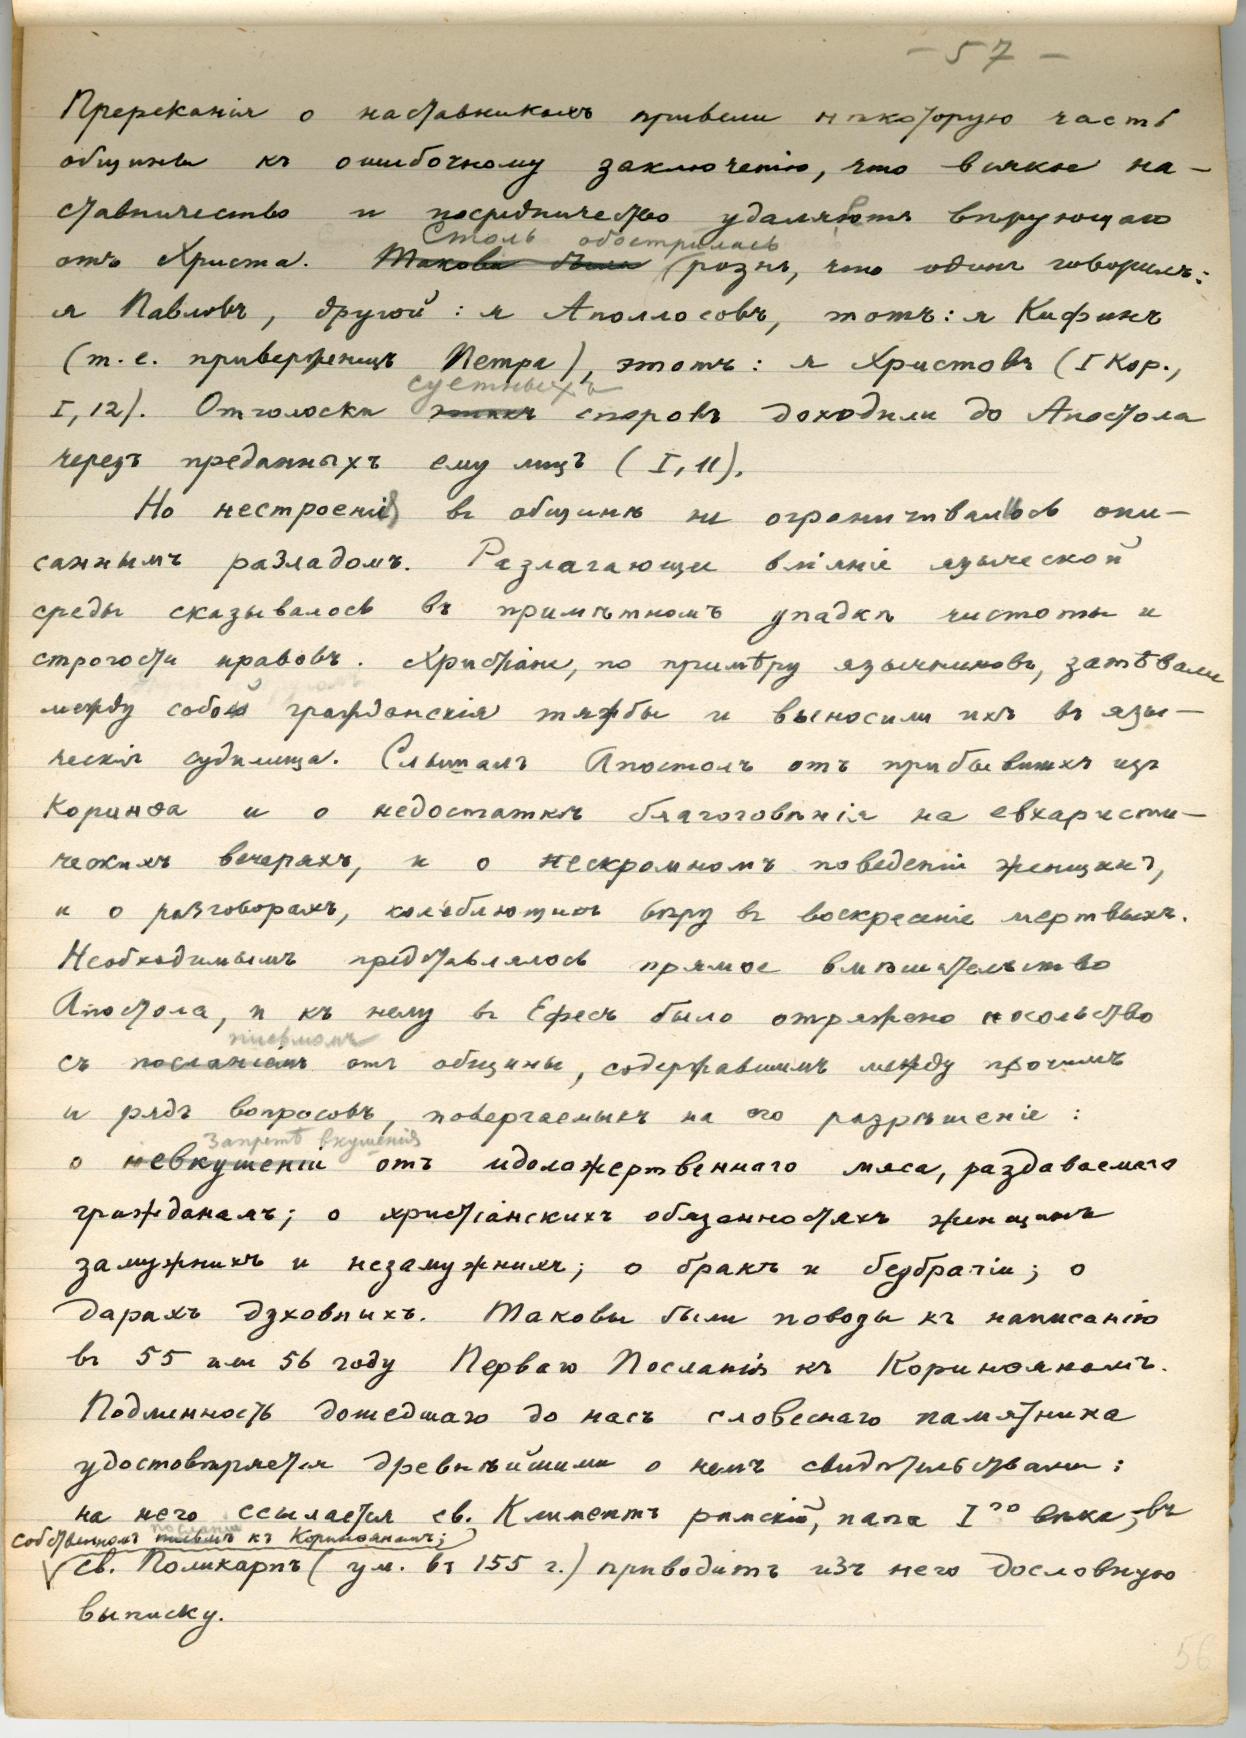 — 57 —
Пререканія о наставникахъ привели нѣкоторую часть
общины къ ошибочному заключенію, что всякое на-
ставничество и посредничество удаляютъ вѣрующаго
Столь обострилась
отъ Христа. Такова была рознь, что одинъ говорилъ:
я Павловъ, другой: я Аполлосовъ, тотъ: я Кифинъ
(т.е. приверженецъ Петра), этотъ: я Христовъ (I Кор.,
суетныхъ
I, 12). Отголоски этихъ споровъ доходили до Апостола
черезъ преданныхъ ему лицъ (I, 11).
Но нестроенія въ общинѣ не ограничивались опи-
саннымъ разладомъ. Разлагающее вліяніе языческой
среды сказывалось въ примѣтномъ упадкѣ чистоты и
строгости нравовъ. Христіане, по примѣру язычниковъ, затѣвали
между собой гражданскія тяжбы и выносили ихъ въ язы-
ческія судилища. Слышалъ Апостолъ отъ прибывшихъ изъ
Коринѳа и о недостаткѣ благоговѣнія на евхаристи-
ческихъ вечеряхъ, и о нескромномъ поведеніи женщинъ,
и о разговорахъ, колеблющихъ вѣру въ воскресеніе мертвыхъ.
Необходимымъ представлялось прямое вмѣшательство
Апостола, и къ нему въ Ефесъ было отряжено посольство
письмомъ
съ посланіемъ отъ общины, содержавшимъ между прочимъ
и рядъ вопросовъ, повергаемыхъ на его разрѣшеніе:
запретѣ вкушенія
о невкушеніи отъ идоложертвеннаго мяса, раздаваемаго
гражданамъ; о христіанскихъ обязанностяхъ женщинъ
замужнихъ и незамужнихъ; о бракѣ и безбрачіи; о
дарахъ духовныхъ. Таковы были поводы къ написанію
въ 55 или 56 году Перваго Посланія къ Коринѳянамъ.
Подлинность дошедшаго до насъ словеснаго памятника
удостовѣряется древнѣйшими о немъ свидѣтельствами:
на него ссылается св. Климентъ римскій, папа I го вѣка, въ
посланіи
собственномъ письмѣ къ Коринѳянамъ;
св. Поликарпъ (ум. въ 155 г.) приводитъ изъ него дословную
выписку.
56